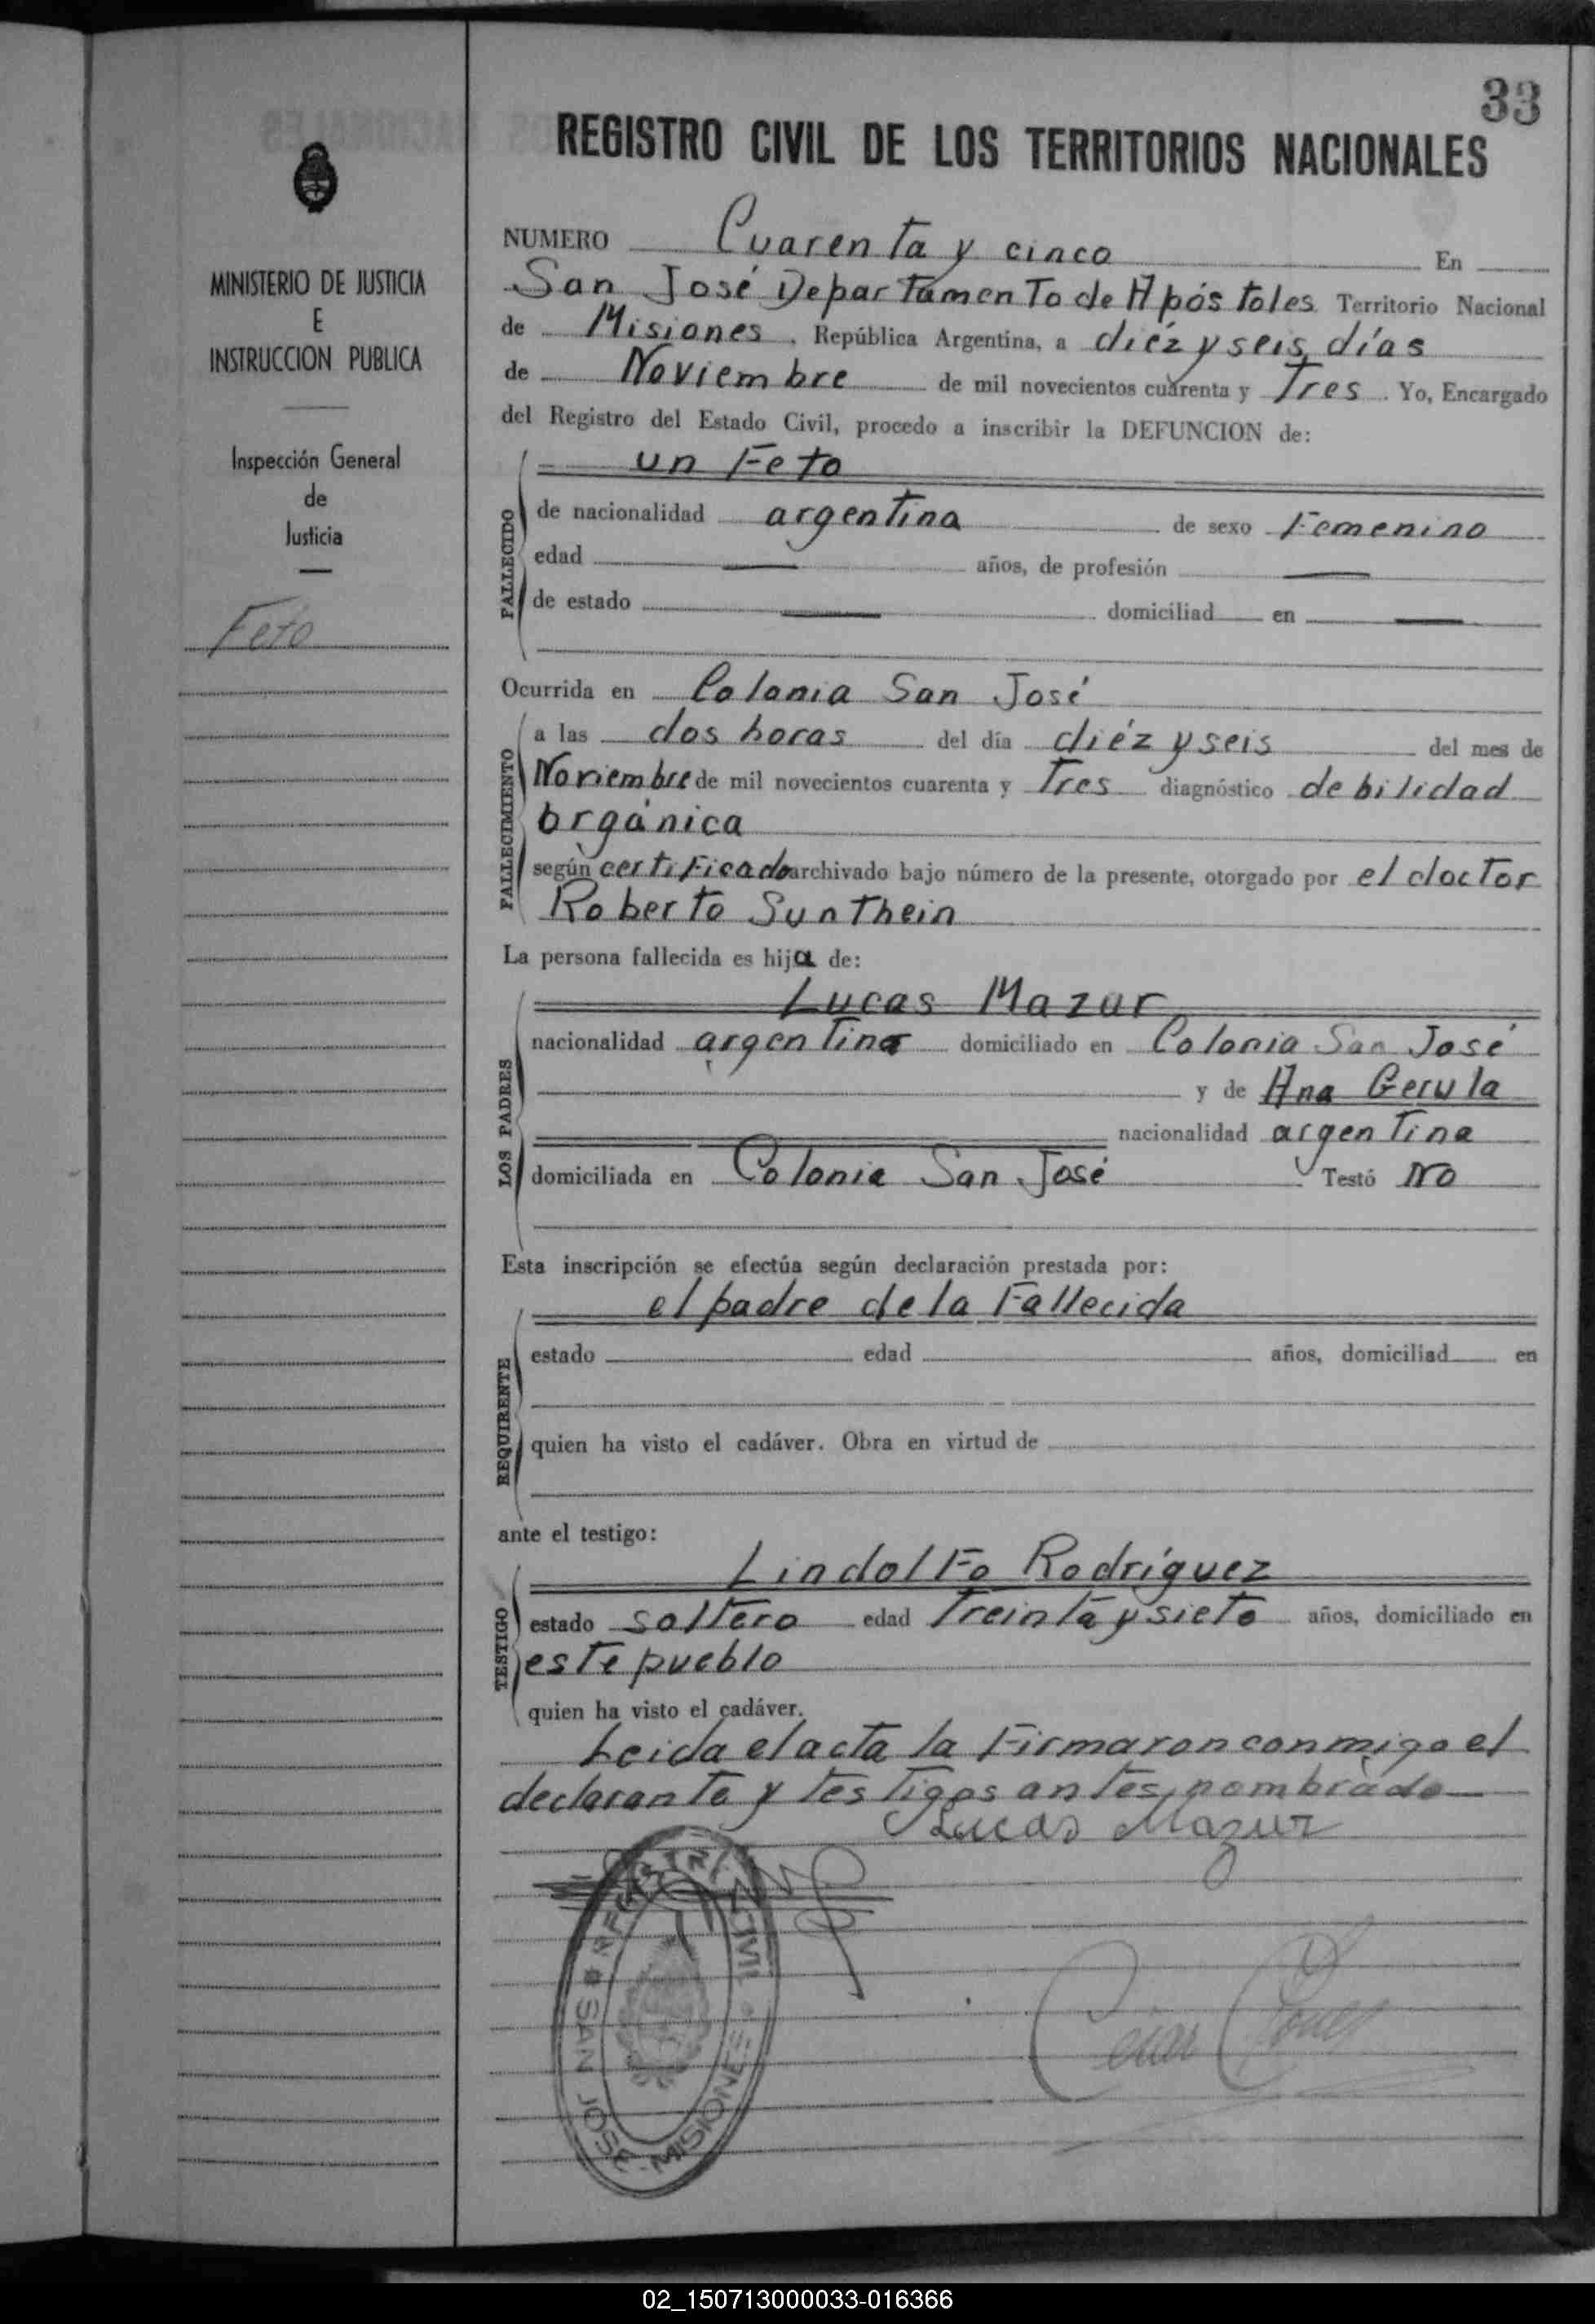 33
REGISTRO CIVIL DE LOS TERRITORIOS NACIONALES
MINISTERIO DE JUSTICIA
E
INSTRUCCION PUBLICA
Inspección General
de
Justicia
Feto
NUMERO Cuarenta y cinco En
San José Departamento de Apóstoles Territorio Nacional
de Misiones, República Argentina, a diéz y seis días
de Noviembre de mil novecientos cuarenta y Tres. Yo, Encargado
del Registro del Estado Civil, procedo a inscribir la DEFUNCION de:
un Feto
FALLECIDO
de nacionalidad argentina de sexo Femenino
edad años, de profesión
de estado domiciliad en
Ocurrida en Colonia San José
FALLECIMIENTO
a las dos horas del día diéz y seis del mes de
Noviembre de mil novecientos cuarenta y Tres diagnóstico debilidad
orgánica
según certificado archivado bajo número de la presente, otorgado por el doctor
Roberto Sunthein
La persona fallecida es hija de:
Lucas Mazur
LOS PADRES
nacionalidad argentina domiciliado en Colonia San José
y de Ana Gerula
nacionalidad argentina
domiciliada en Colonia San José Testó No
Esta inscripción se efectúa según declaración prestada por:
el padre de la Fallecida
REQUIRENTE
estado edad años, domiciliad en
quien ha visto el cadáver. Obra en virtud de
ante el testigo:
Lindolfo Rodríguez
TESTIGO
estado soltero edad Treinta y siete años, domiciliado en
este pueblo
quien ha visto el cadáver.
Leida el acta la Firmaron conmigo el
declarante y testigos antes nombrado
Lucas Mazur
REGISTRO CIVIL
SAN JOSE - MISIONES
02_150713000033-016366